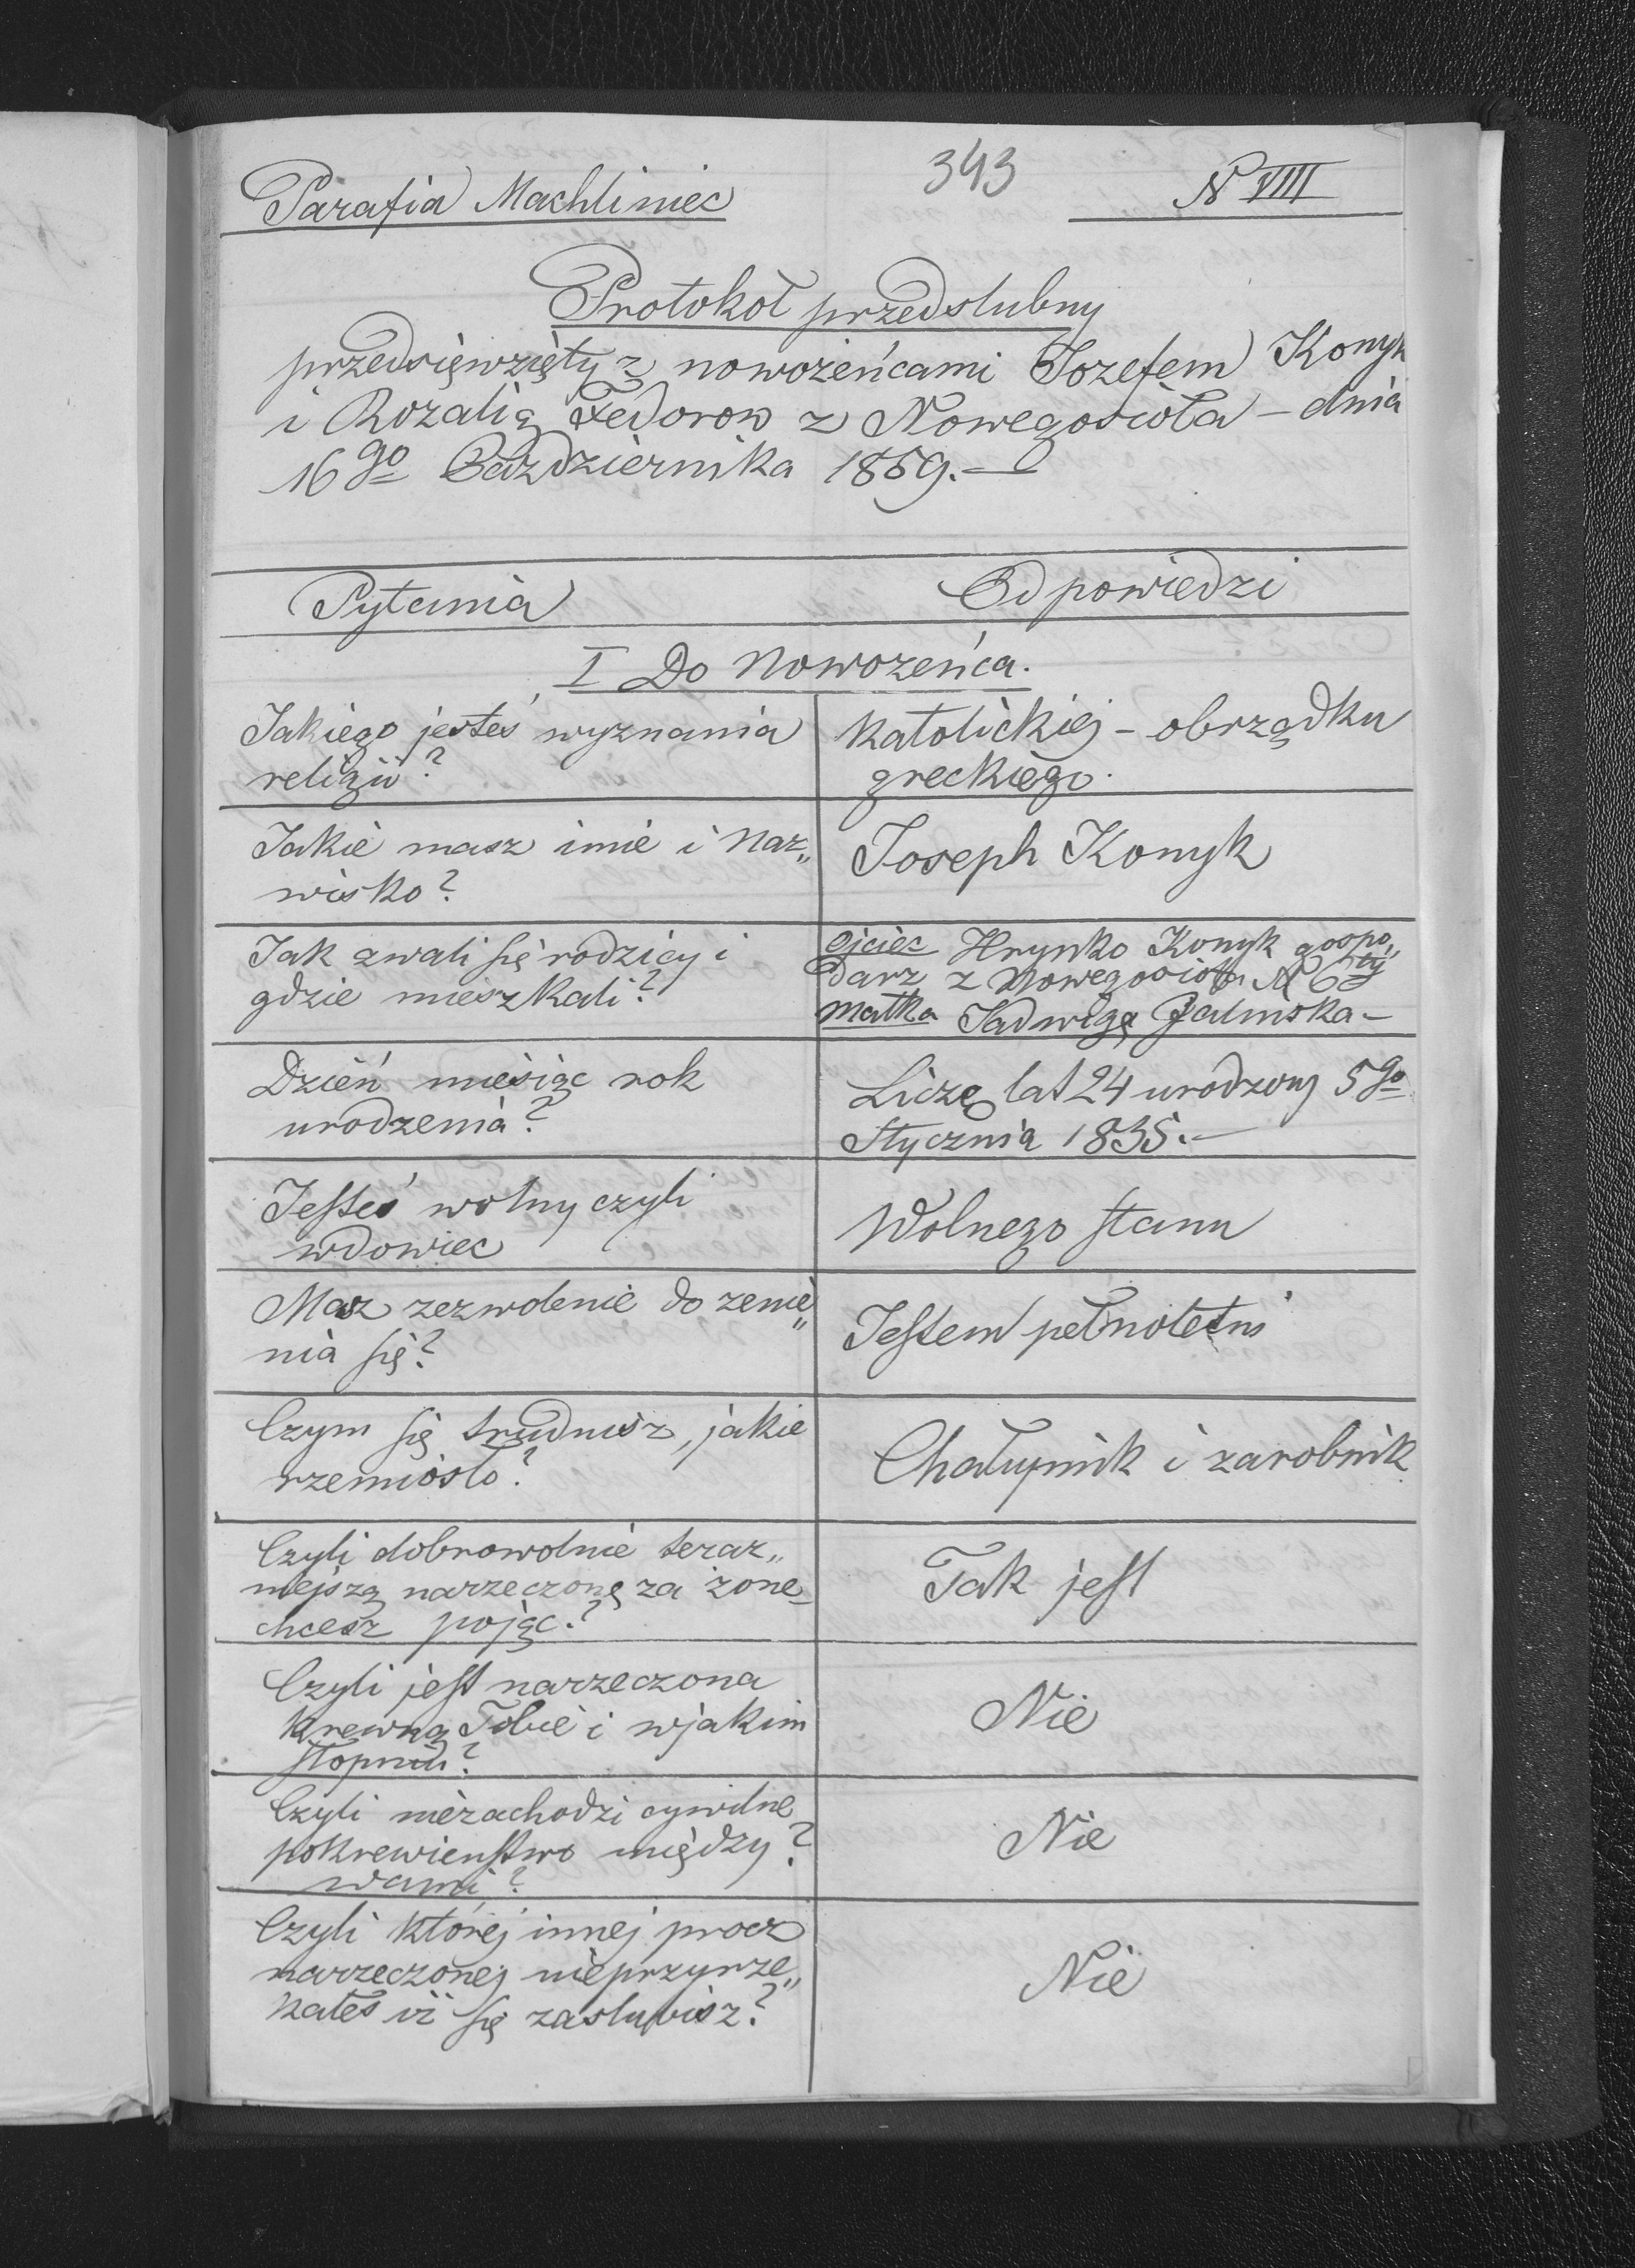 343
Parafia Machliniec
N VIII
Protokoł przedslubny
przedsięwzięty z nowożeńcami Jozefem Konyk
i Rozalią Fedorow z Nowegosioła – dnia
16go Października 1859. –
Pytania
Odpowiedzi
I Do Nowożeńca.
Jakiego jesteś wyznania
religii?
Katolickiej – obrządku
greckiego.
Jakie masz imie i Naz„
wisko?
Joseph Konyk
Jak zwali się rodzicy i
gdzie mieszkali?
Ojciec Hrynko Konyk gospo„
darz z Nowegosioła N
Matka Jadwiga
Dzień miesiąc rok
urodzenia?
Liczę lat 24 urodzony 5go
Stycznia 1835. –
Jesteś wolny czyli
wdowiec
Wolnego stanu
Masz zezwolenie do żenie„
nia się?
Jestem pełnoletni
Czym się trudnisz, jakie
rzemiosło?
Chałupnik i zarobnik
Czyli dobrowolnie teraz„
niejszą narzeczonę za żone
chcesz pojąc?
Tak jest
Czyli jest narzeczona
Krewną Tobie i wjakim
stopniu?
Nie
Czyli niezachodzi cywilne
pokrewienstwo między?
wami?
Nie
Czyli której innej procz
narzeczonej nieprzyrze„
kałeś iż się zaslubisz?
Nie